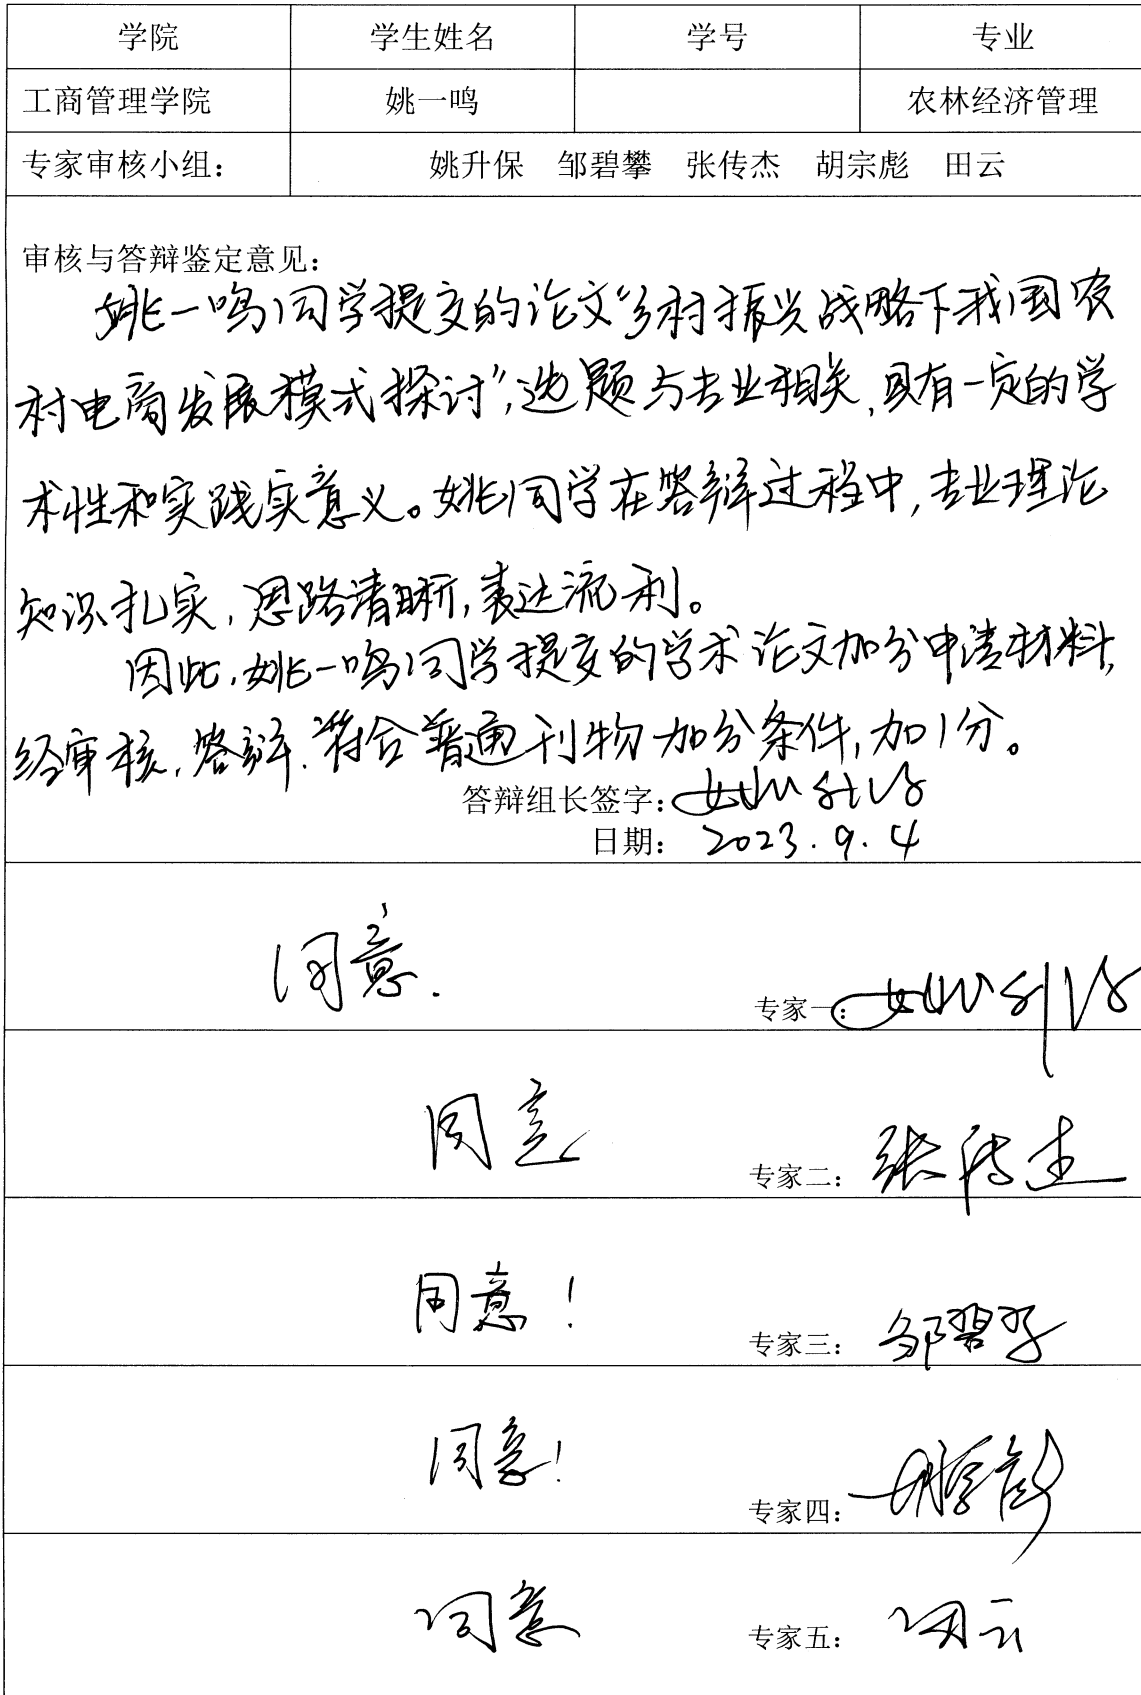 学院 学生姓名 学号 专业
工商管理学院 姚一鸣 农林经济管理
专家审核小组： 姚升保 邹碧攀 张传杰 胡宗彪 田云
审核与答辩鉴定意见：
姚一鸣同学提交的论文“乡村振兴战略下我国农
村电商发展模式探讨”，选题与专业相关，具有一定的学
术性和实践实意义。姚同学在答辩过程中，专业理论
知识扎实，思路清晰，表达流利。
因此，姚一鸣同学提交的学术论文加分申请材料，
经审核，答辩，符合普通刊物加分条件，加1分。
答辩组长签字：姚升保
日期： 2023.9.4
同意.
专家一：姚升保
同意
专家二：张传杰
同意！
专家三：邹碧攀
同意！
专家四：胡宗彪
同意
专家五：田云